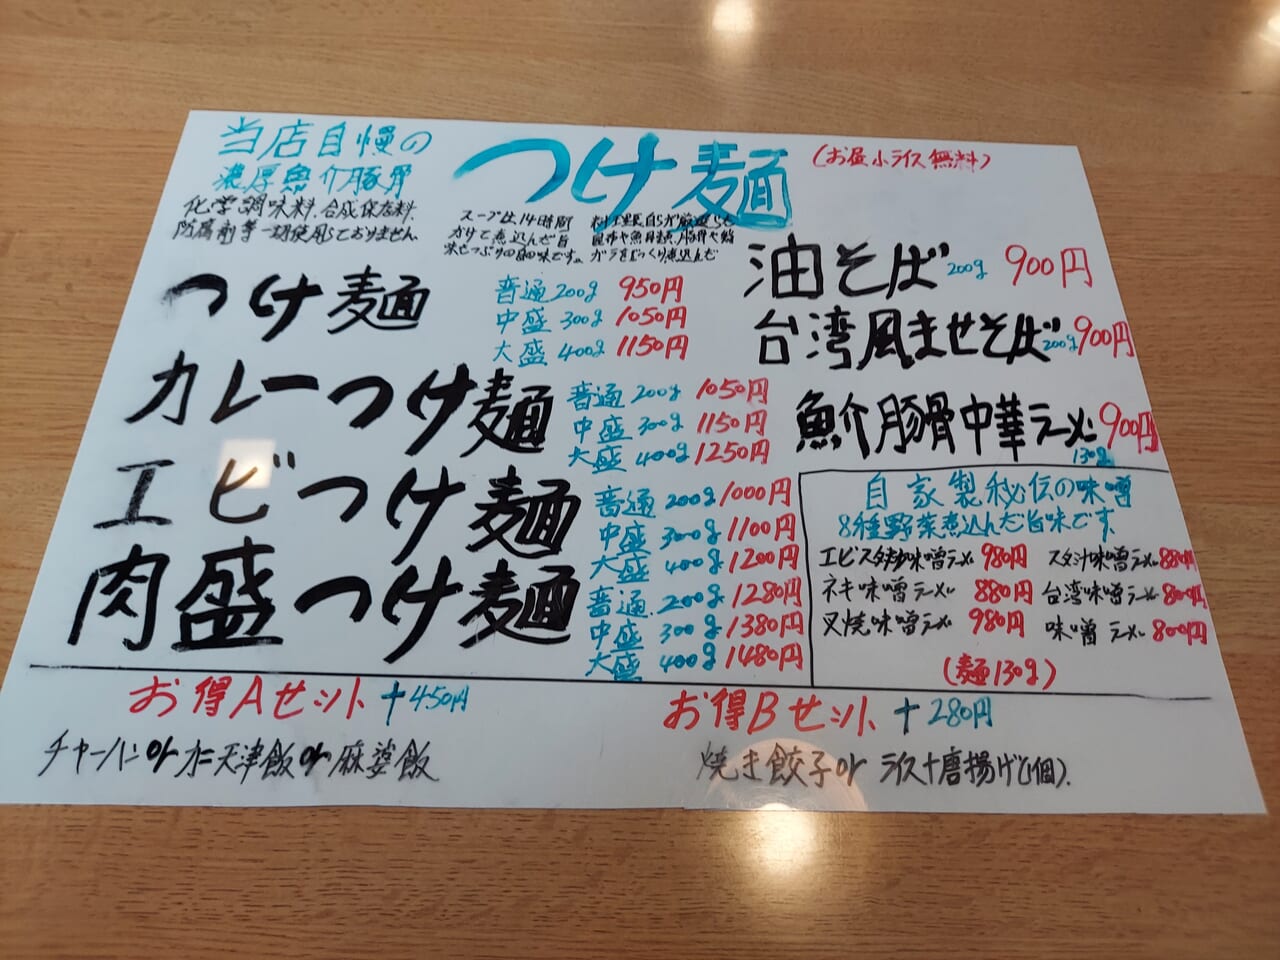 当店自慢の
濃厚魚介豚骨
化学調味料、合成保存料、
防腐剤等一切使用しておりません
つけ麺
(お昼小ライス無料)
スープは14時間
かけて煮込んだ旨
味たっぷりの
料理長自らが厳選した
昆布や魚
ガラをじっくり煮込んだ
つけ麺
普通200g 950円
中盛300g 1050円
大盛400g 1150円
カレーつけ麺
普通200g 1050円
中盛300g 1150円
大盛400g 1250円
エビつけ麺
普通200g 1000円
中盛300g 1100円
大盛400g 1200円
肉盛つけ麺
普通200g 1280円
中盛300g 1380円
大盛400g 1480円
油そば200g 900円
台湾風ませそば200g 900円
魚介豚骨中華ラーメン 900円
130g
自家製秘伝の味噌
8種野菜煮込んだ旨味です
味噌ラーメン 980円
スタ汁味噌ラーメン 880円
ネギ味噌ラーメン 880円
台湾味噌ラーメン 800円
叉焼味噌ラーメン 980円
味噌ラーメン 800円
(麺130g)
お得Aセット+450円
チャーハンorカニ天津飯or麻婆飯
お得Bセット+280円
焼き餃子orライス+唐揚げ(1個).